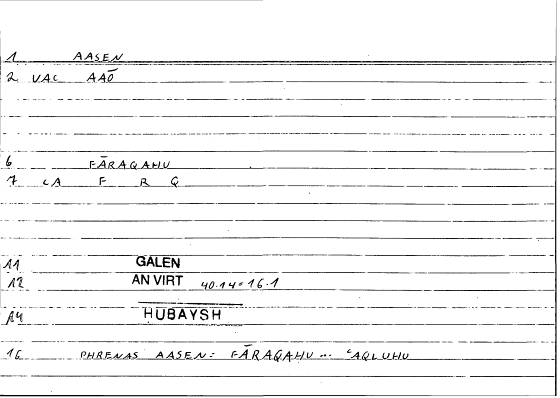 1 AASEN
2 VAC AAŌ
6 FĀRAQAHU
7 CA F R Q
11 GALEN
12 AN VIRT 40.14=16.1
14 HUBAYSH
16 PHRENAS AASEN: FĀRAQAHU ... ʿAQLUHU